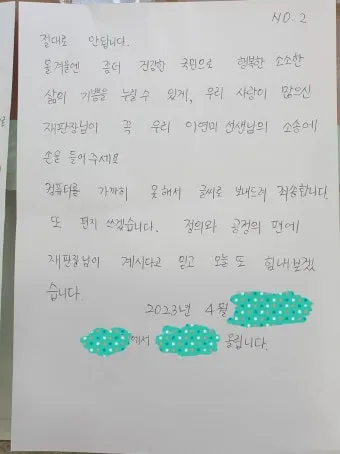 NO. 2
절대로 안됩니다.
올겨울엔 좀더 건강한 국민으로 행복한 소소한
삶의 기쁨을 누릴수 있게, 우리 사랑이 많으신
재판장님이 꼭 우리 이연미 선생님의 소송에
손을 들어주세요
컴퓨터를 가까히 못해서 글씨로 보내드려 죄송합니다.
또 편지 쓰겠습니다. 정의와 공정의 편에
재판장님이 계시다고 믿고 오늘도 힘내보겠
습니다.
2023년 4월
에서 올립니다.